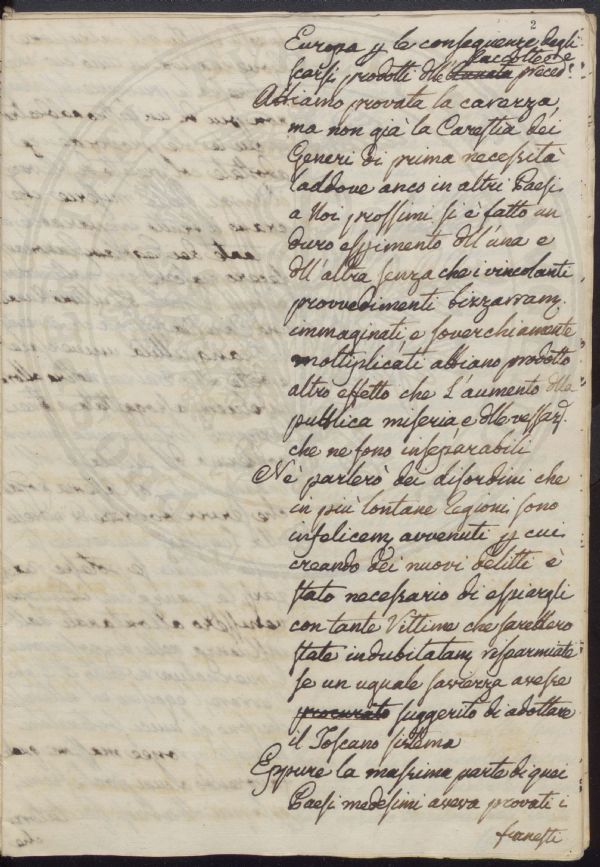 2
Europa p le conseguenze degli
scarsi prodotti dlle Raccolte preced.ti
Abbiamo provata la carezza,
ma non già la Carestia dei
Generi di prima necessità
laddove anco in altri Paesi
a Noi prossimi si è fatto un
duro esperimento dll'una e
dll'altra senza che i vincolanti
provvedimenti bizzarram.
immaginati, e soverchiamente
moltiplicati abbiano prodotto
altro effetto che l'aumento dlla
pubblica miseria e dlle vessaz.
che ne sono inseparabili
Nè parlerò dei disordini che
in più lontane Regioni sono
infelicem avvenuti p cui
creando dei nuovi delitti è
stato necessario di espiargli
con tante Vittime che sarebbero
state indubitatam risparmiate
se un uguale savrezza avesse
procurato suggerito di adottare
il Toscano sistema
Eppure la massima parte di quei
Paesi medesimi aveva provati i
funesti